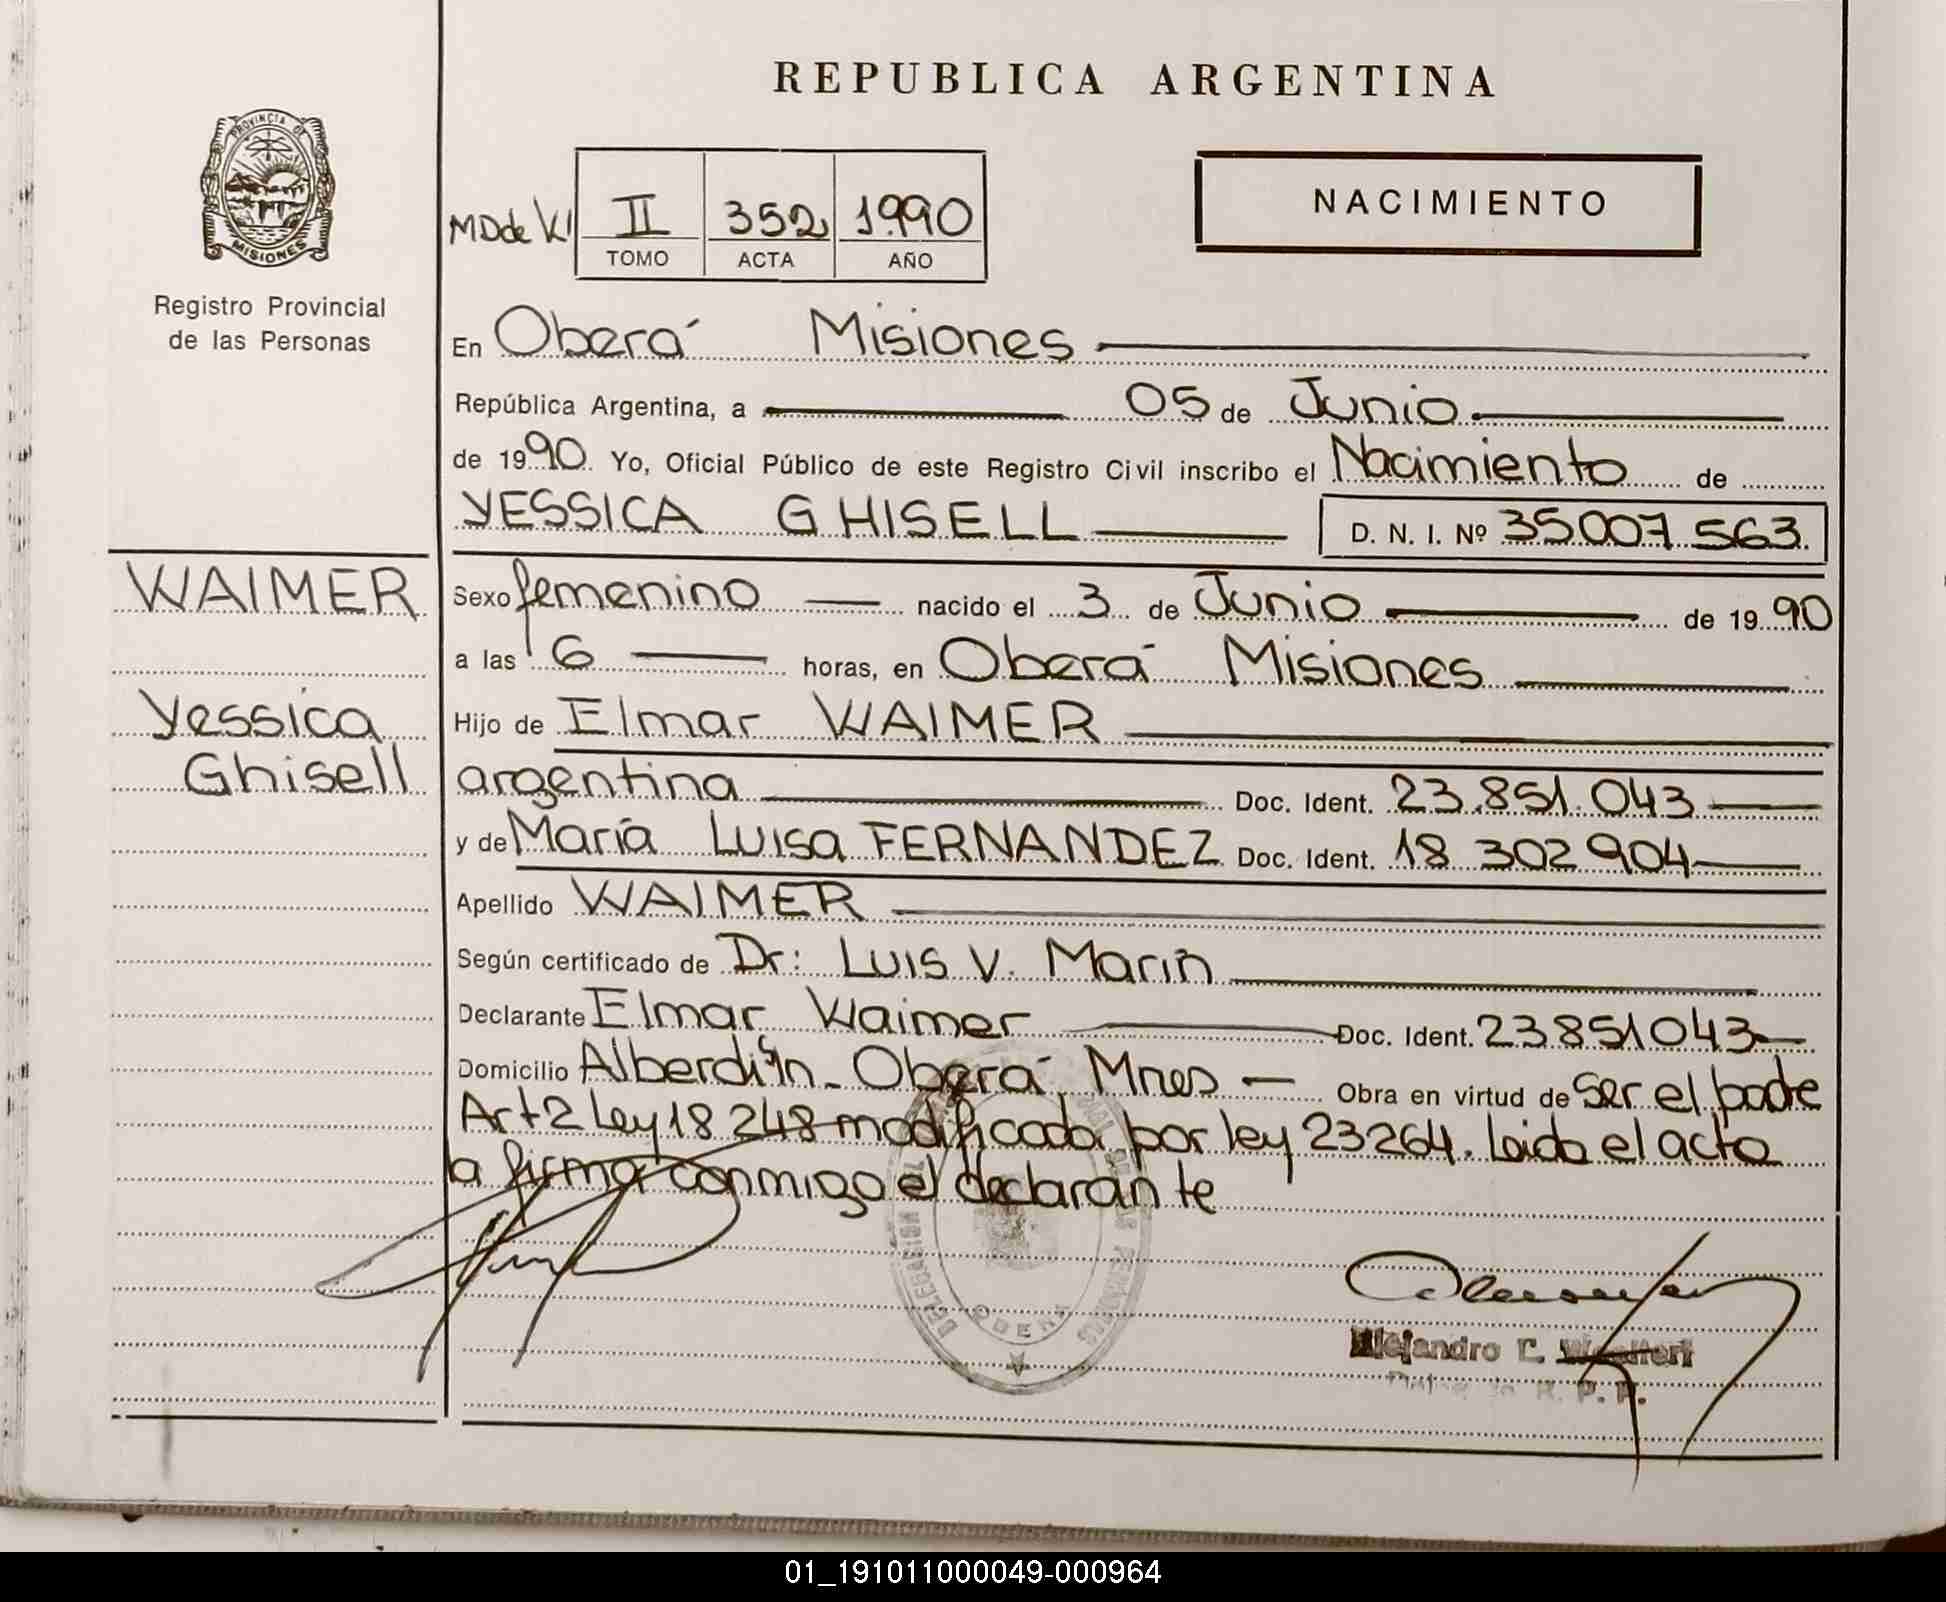 REPUBLICA ARGENTINA
PROVINCIA DE
MISIONES
Registro Provincial
de las Personas
II 352 1990
TOMO ACTA AÑO
NACIMIENTO
En Oberá Misiones
República Argentina, a 05 de Junio
de 1990. Yo, Oficial Público de este Registro Civil inscribo el Nacimiento de
YESSICA GHISELL D. N. I. Nº 35007563.
WAIMER
Yessica
Ghisell
Sexo femenino nacido el 3 de Junio de 1990
a las 6 horas, en Oberá Misiones
Hijo de Elmar WAIMER
argentina Doc. Ident. 23.851.043
y de María Luisa FERNANDEZ Doc. Ident. 18 302 904
Apellido WAIMER
Según certificado de Dr: Luis V. Marin
Declarante Elmar Waimer Doc. Ident. 23851043
Domicilio Oberá Mnes Obra en virtud de Ser el padre
Art 2 Ley 18 248 modificada por ley 23264. Leida el acta
la firma conmigo el declarante
DELEGACIÓN DEL
OBERA
Alejandro
R. P. P.
01_191011000049-000964